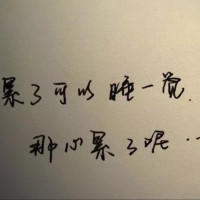 累了可以睡一觉.
那心累了呢···